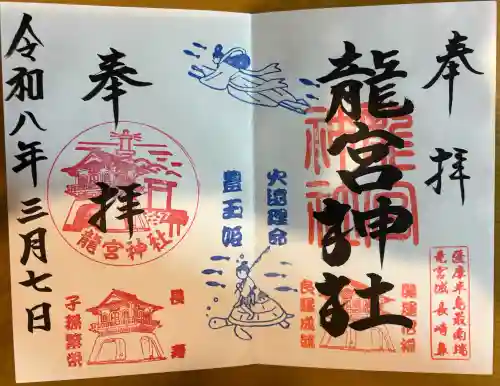 奉拝
龍宮神社
龍宮神社
薩摩半島最南端
竜宮城 長崎鼻
開運招福
良縁成就
火遠理命
豊玉姫
奉拝
龍宮神社
長寿
子孫繁栄
令和八年三月七日